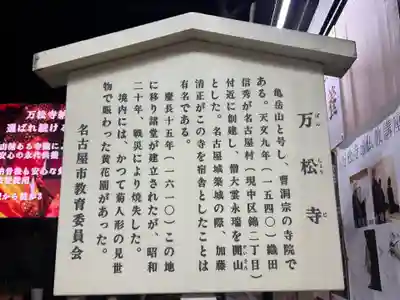 万松寺
ばん しょう じ
亀岳山と号し、曹洞宗の寺院で
ある。天文九年(一五四〇)織田
信秀が名古屋村(現中区錦二丁目)
付近に創建し、僧大雲永瑞を開山
とした。名古屋城築城の際、加藤
清正がこの寺を宿舎としたことは
有名である。
慶長十五年(一六一〇)この地
に移り諸堂が建立されたが、昭和
二十年、戦災により焼失した。
境内には、かつて菊人形の見世
物で賑わった黄花園があった。
名古屋市教育委員会
万松寺
選ばれ続ける